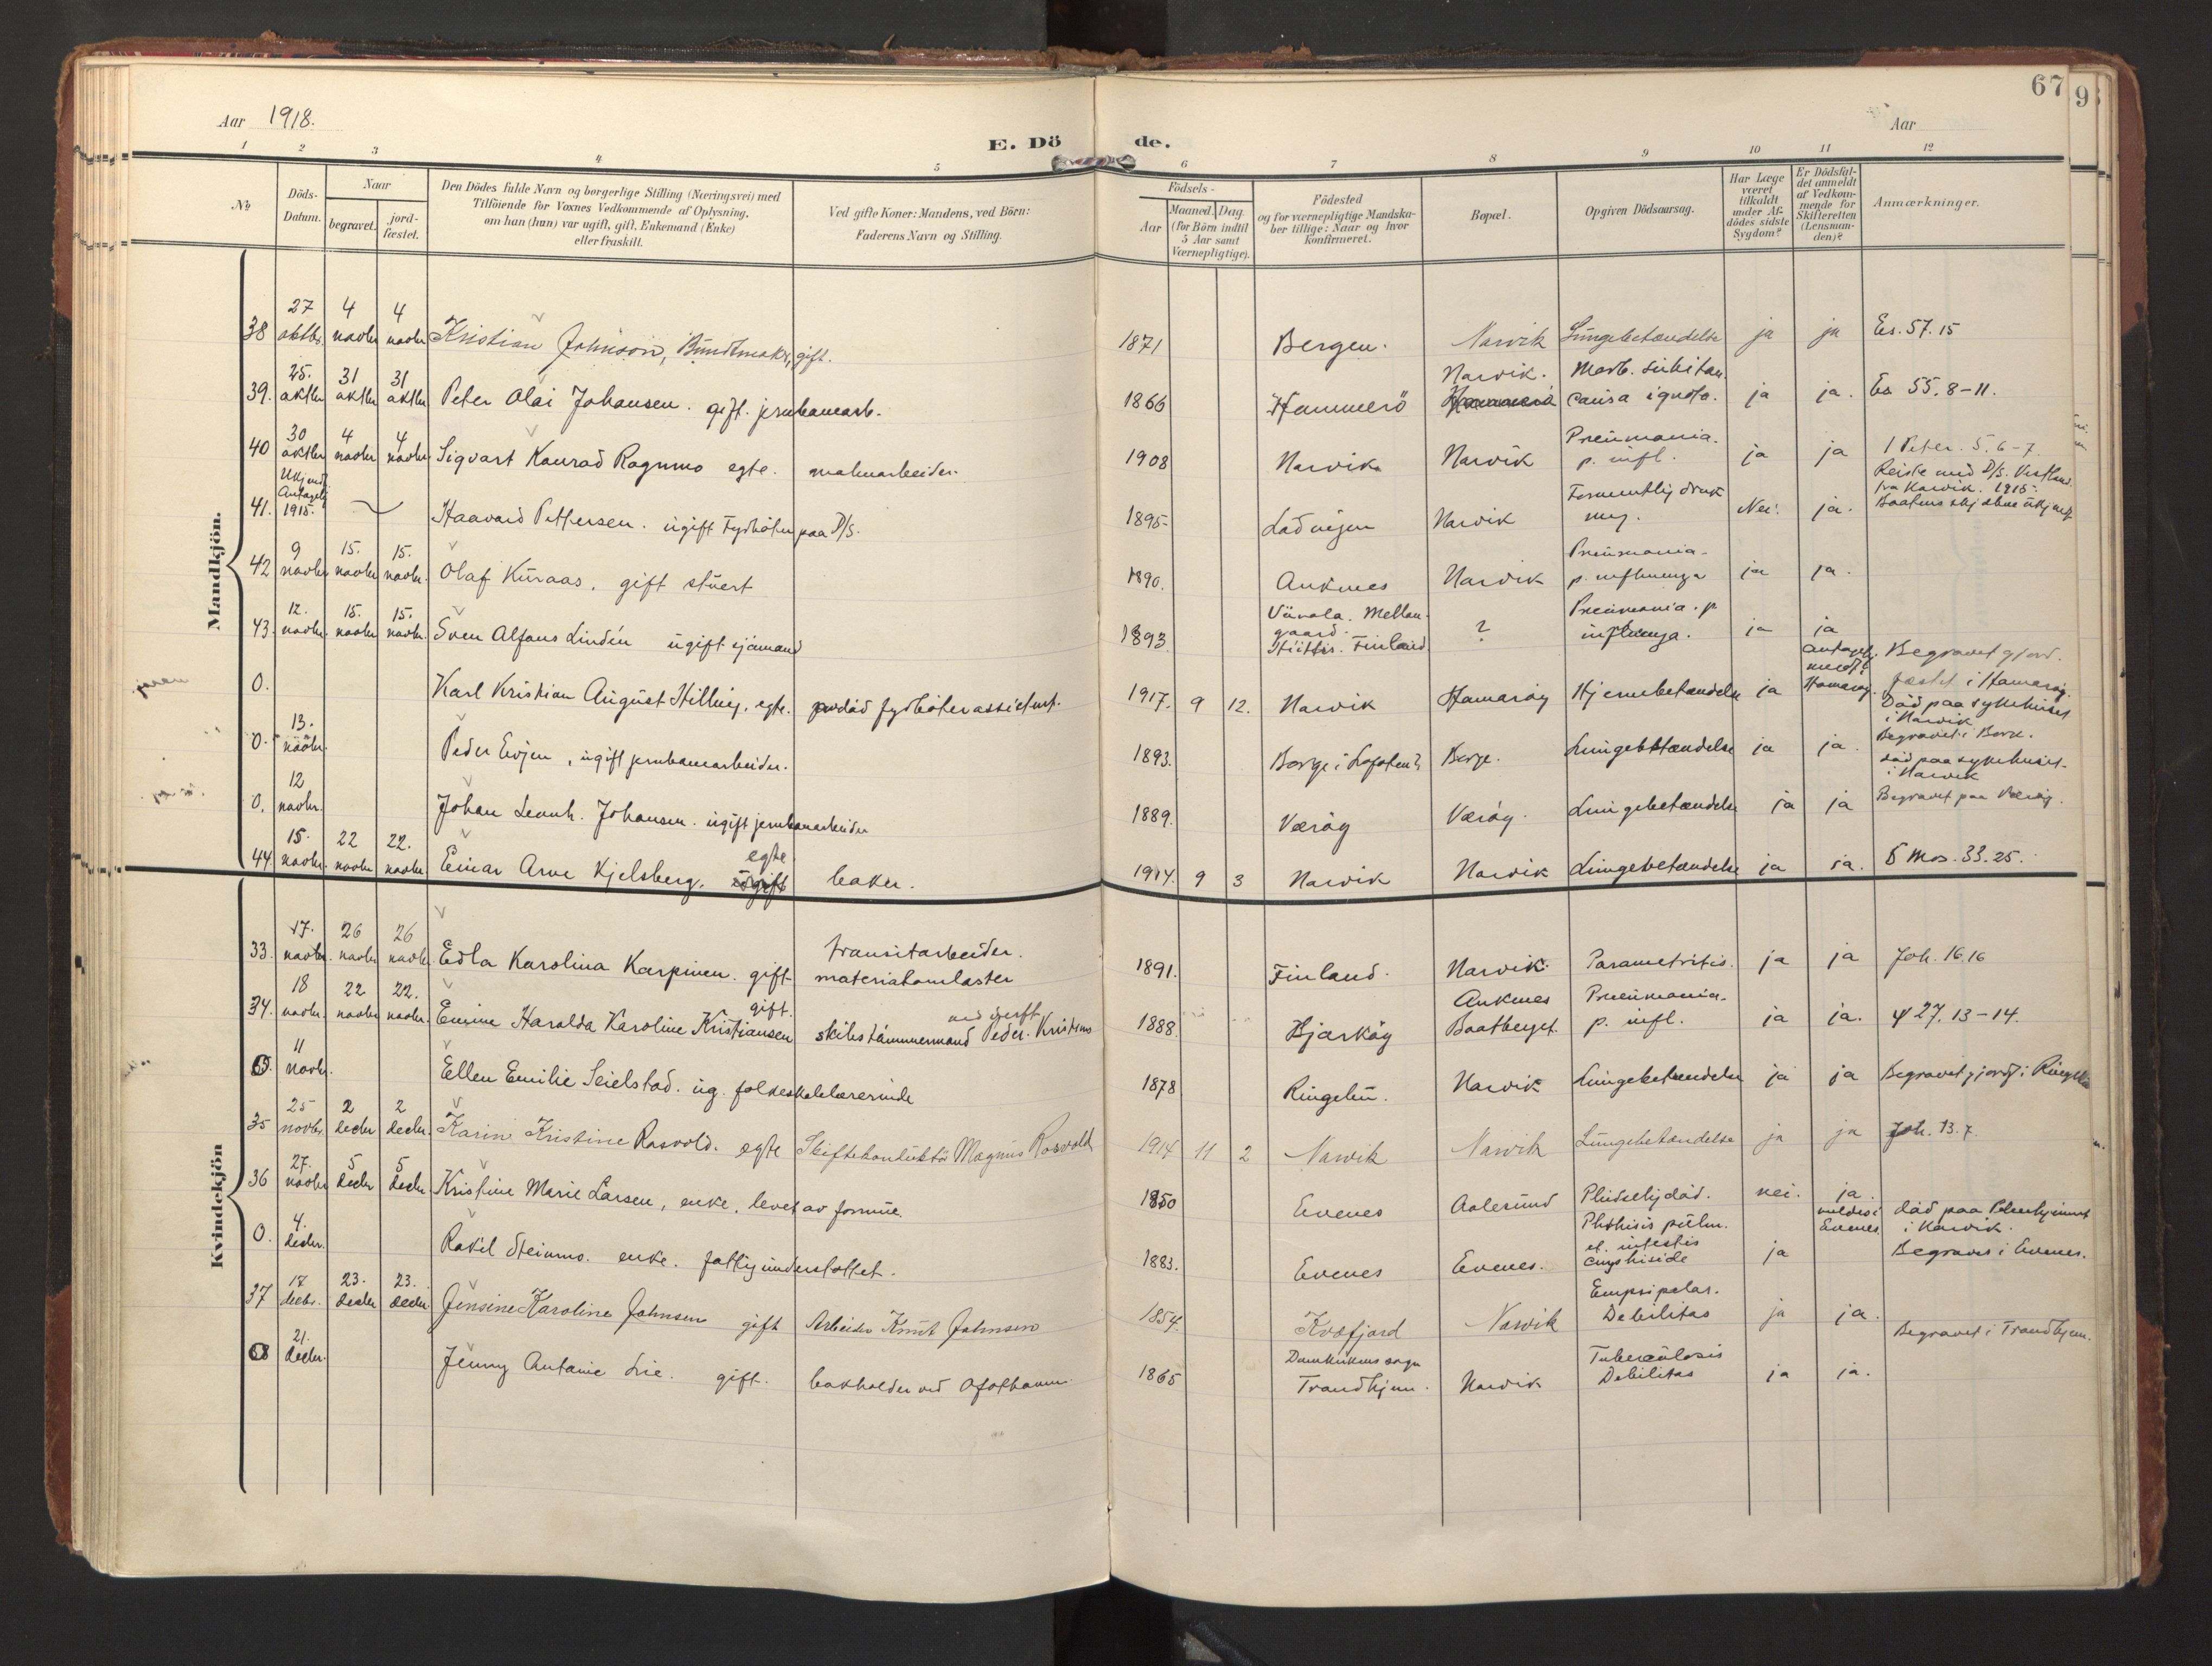 Aar 1918.
E. Dö de.
Aar
67
9
1 2 3 4 5 6 7 8 9 10 11 12
No
Döds-Datum.
Naar
begravet.
jord-fæstet.
Den Dödes fulde Navn og borgerlige Stilling (Næringsvei) med
Tilföiende for Voxnes Vedkommende af Oplysning,
om han (hun) var ugift, gift, Enkemand (Enke)
eller fraskilt.
Ved gifte Koner: Mandens, ved Börn:
Faderens Navn og Stilling.
Födsels-
Aar
Maaned. Dag.
(for Börn indtil
5 Aar samt
Værnepligtige).
Födested
og for værnepligtige Mandska-
ber tillige: Naar og hvor
konfirmeret.
Bopæl.
Opgiven Dödsaarsag.
Har Læge
været
tilkaldt
under Af-
dödes sidste
Sygdom?
Er Dödsfal-
det anmeldt
af Vedkom-
mende for
Skifteretten
(Lensman-
den)?
Anmærkninger.
Mandkjön.
38 27 oktbr. 4 novbr 4 novbr Kristian Johnson, Bundtmaker, gift. 1871 Bergen. Narvik Lungebetændelse ja ja Es. 57. 15
39. 25. oktbr 31 oktbr 31 oktbr Peter Olai Johansen. gift. jernbanearb. 1866 Hammerö Narvik. Morb. subitan. causa ignota. ja ja. Es 55. 8-11.
40 30 oktbr 4 novbr 4 novbr Sigvart Konrad Rognmo egte. malmarbeider. 1908 Narvik Narvik Pneumonia. p. infl. ja ja 1 Peter. 5. 6-7.
41. Ukjendt Antagelig 1915. Haavard Pettersen. ugift Fyrböter paa D/S. 1895 Lødingen Narvik Formentlig drukning. Nei. ja. Reiste med D/S. Vestland fra Narvik. 1915.
42 9 novbr 15. novbr 15. novbr. Olaf Kuraas. gift stuert 1890. Ankenes Narvik Pneumonia p. influenza ja ja.
43. 12. novbr. 15. novbr. 15. novbr. Sven Alfons Lindén ugift sjömand 1893 Vänola. Mellangaard. Hiittis. Finland ? Pneumonia. p influenza. ja ja
0. Karl Kristian August Hilling. egte. fyrböterassistent. 1917. 9 12. Narvik Hamaröy Hjernebetændelse ja antagelig meldt i Hamaröy. Begravet og jordfæstet i Hamaröy.
0. 13. novbr. Peder Evjen, ugift jernbanearbeider. 1893. Borge i Lofoten? Borge. Lungebetændelse ja ja. Död paa sykehuset i Narvik Begravet i Borge.
0. 12 novbr. Johan Leonh. Johansen. ugift jernbanearbeider 1889. Væröy Væröy. Lungebetændelse ja ja död paa sykehuset i Narvik Begravet paa Væröy.
44. 15. novbr. 22 novbr. 22. novbr Einar Arve Kjelsberg. egte baker. 1914. 9 3 Narvik Narvik Lungebetændelse ja ja. 5 Mos. 33. 25.
Kvindekjön
33. 17. novbr. 26 novbr 26 novbr. Edla Karolina Karpinen. gift transitarbeider. materialomlaster 1891. Finland. Narvik. Parametritis. ja ja Joh. 16. 16
34. 18 novbr. 22 novbr. 22. novbr. Emine Haralda Karoline Kristiansen gift. skibstömmermand Peder Kristians 1888. Bjarköy Ankenes Baatberget. Pneumonia. p. infl. ja ja. ψ 27. 13-14.
0. 11 novbr. Ellen Emilie Seielstad. ug. folkeskolelærerinde 1878 Ringebu. Narvik Lungebetændelse ja ja Begravet og jordf. i Ringebu
35 25 novbr. 2 decbr 2 decbr. Karin Kristine Rosvold. egte Skiftekonduktör Magnus Rosvold 1914 11 2 Narvik Narvik Lungebetændelse ja ja Joh. 13. 7.
36 27. novbr 5 decbr 5 decbr. Kristine Marie Larsen, enke. levet av formue. 1850 Evenes Aalesund Pludselig död. nei. ja.
0. 4. decbr. Rakel Steinmo. enke. fattigunderstöttet. 1883. Evenes Evenes. Phthisis pulm. et. intestis ja meldes i Evenes. död paa Pleiehjemmet i Narvik. Begraves i Evenes.
37 17 decbr. 23. decbr 23. decbr. Jensine Karoline Johnsen gift Arbeider Knut Johnsen 1854. Kvæfjord Narvik Debilitas ja ja.
0 21. decbr. Jenny Antonie Lie. gift. bokholder ved Ofotbanen. 1865 Domkirkens sogn Trondhjem. Narvik Tuberculosis Debilitas ja ja. Begravet i Trondhjem.